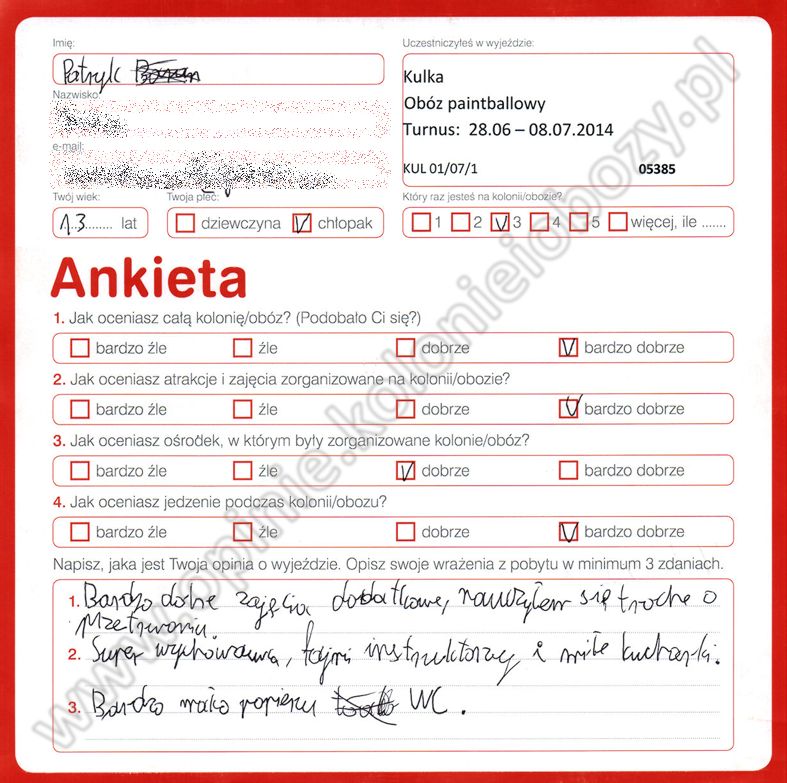 Imię:
Patryk
Uczestniczyłeś w wyjeździe:
Kulka
Obóz paintballowy
Turnus: 28.06 – 08.07.2014
KUL 01/07/1 05385
Nazwisko
e-mail:
Twój wiek:
13 lat
Twoja płeć:
dziewczyna V chłopak
Który raz jesteś na kolonii/obozie?
1 2 V 3 4 5 więcej, ile .......
Ankieta
1. Jak oceniasz całą kolonię/obóz? (Podobało Ci się?)
bardzo źle źle dobrze V bardzo dobrze
2. Jak oceniasz atrakcje i zajęcia zorganizowane na kolonii/obozie?
bardzo źle źle dobrze V bardzo dobrze
3. Jak oceniasz ośrodek, w którym były zorganizowane kolonie/obóz?
bardzo źle źle V dobrze bardzo dobrze
4. Jak oceniasz jedzenie podczas kolonii/obozu?
bardzo źle źle dobrze V bardzo dobrze
Napisz, jaka jest Twoja opinia o wyjeździe. Opisz swoje wrażenia z pobytu w minimum 3 zdaniach.
1. Bardzo dobre zajęcia dodatkowe, nauczyłem się troche o
przetrwaniu.
2. Super wychowawca, fajni instruktorzy i miłe kucharki.
3. Bardzo mało papieru WC.
www.opinie.kolonieiobozy.pl